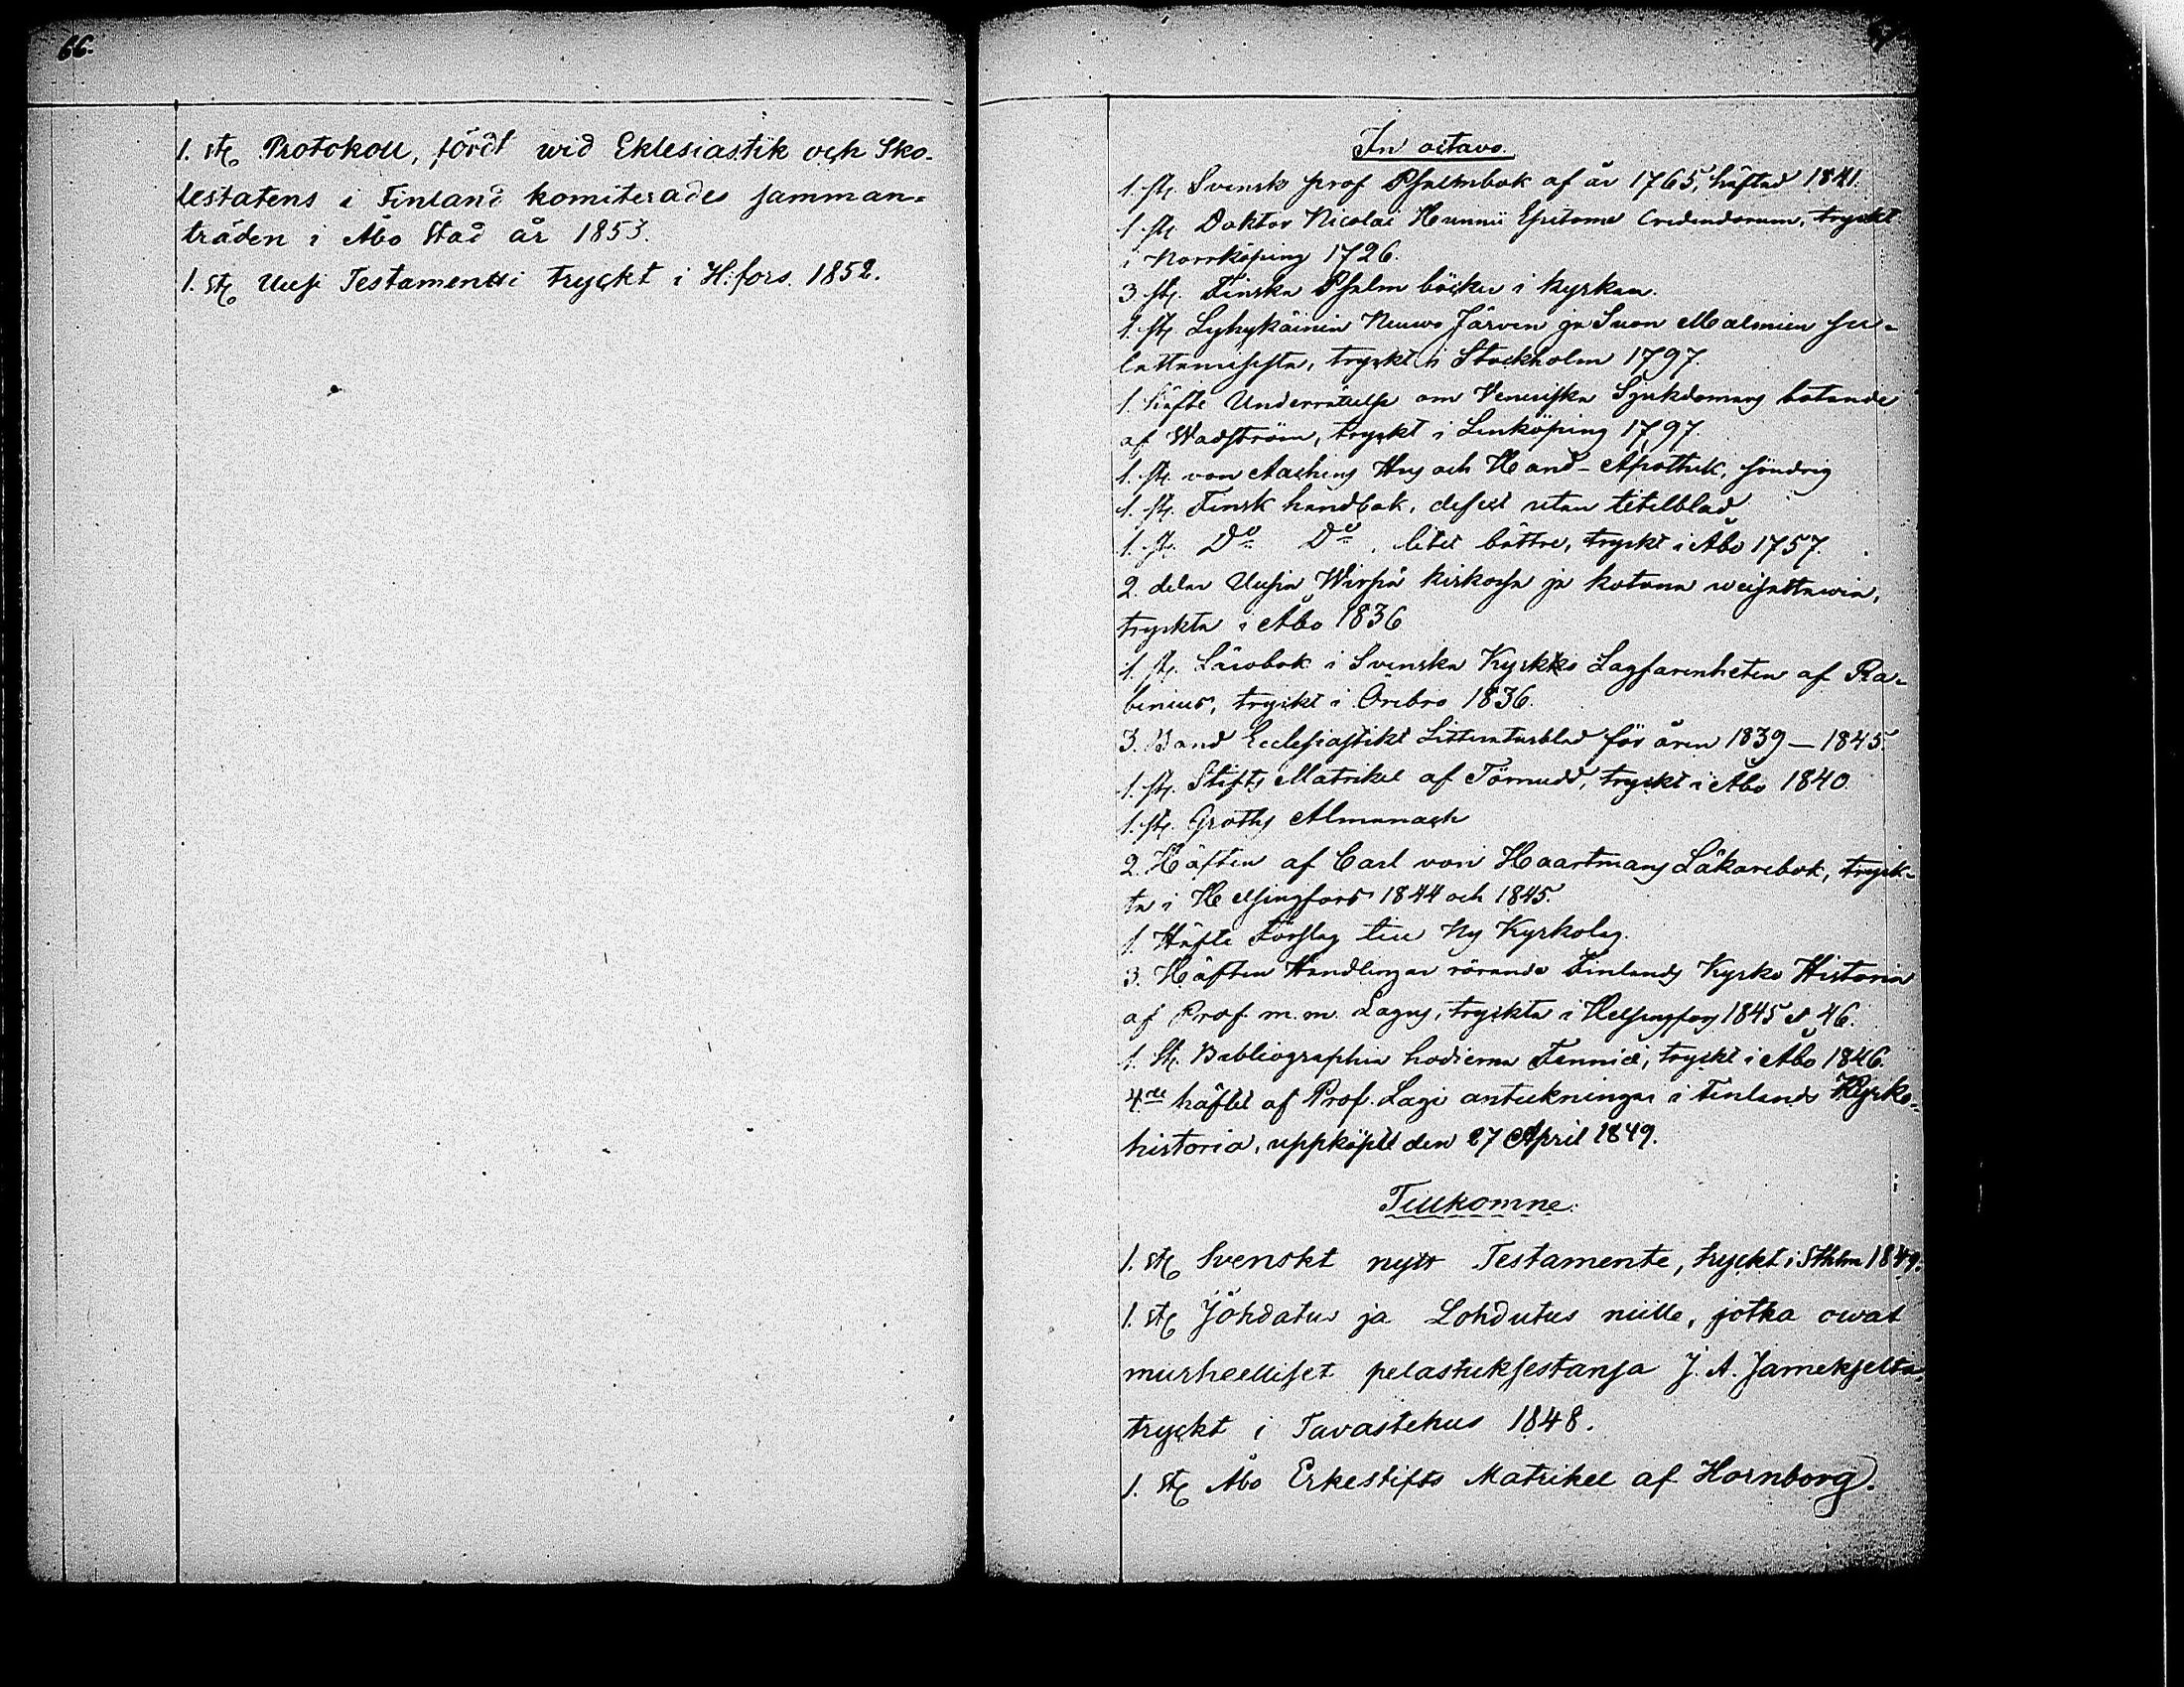 66.
1. st. Protokoll, fördt wid Eklesiastik och Sko-
lestatens i Finland komiterades samman-
träden i Åbo Stad år 1853.
1. st. Uusi Testamentti tryckt i H:fors. 1852.
67.
In octavo.
1. st. Svensk prof Psalmbok af år 1765, häftad 1841.
1. st. Doktor Nicolai Hunnii Epitome Credendorum, tryckt
i Norrköping 1726.
3 st. Finska Psalm böcker i kyrkan.
1. st. Lyhykäinen Neuwo Järwen ja Suon Malmien su-
lattamisesta, tryckt i Stockholm 1797.
1. häfte Underrättelse om Veneriska Sjukdomars botande
af Wadström, tryckt i Linköping 1797.
1. st. von Aschens Hus och Hand-Apothek, söndrig
1. st. Finsk handbok, defect utan titelblad
1. st. Do Do, litet bättre, tryckt i Åbo 1757.
2. delar Uusia Wirsiä kirkossa ja kotona weisattawia,
tryckta i Åbo 1836
1. st. Lärobok i Svenska Kyrko Lagfarenheten af Ra-
benius, tryckt i Örebro 1836.
3. Band Ecclesiastikt Litteraturblad för åren 1839 — 1845.
1. st. Stifts Matrikel af Törnudd, tryckt i Åbo 1840.
1. st. Groths Almanach
2. Häften af Carl von Haartmans Läkarebok, tryck-
ta i Helsingfors 1844 och 1845.
1. Häfte Förslag till Ny Kyrkolag.
3. Häften Handlingar rörande Finlands Kyrko Historia
af Prof. m. m. Lagus, tryckta i Helsingfors 1845 & 46.
1. St. Bibliographia hodierna Fennica, tryckt i Åbo 1846.
4de häftet af Prof. Lagi anteckningar i Finlands Kyrko-
historia, uppköpt den 27 April 1849.
Tillkomne.
1. st. Svenskt nytt Testamente, tryckt i Sthlm 1849.
1. st. Johdatus ja Lohdutus niille, jotka owat
murheelliset pelastuksestansa J. A. Jamekselta,
tryckt i Tavastehus 1848.
1. st. Åbo Erkestifts Matrikel af Hornborg.